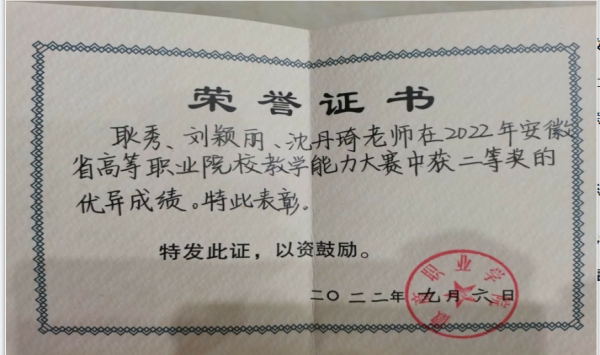 荣誉证书
耿秀、刘颖丽、沈丹琦老师在2022年安徽
省高等职业院校教学能力大赛中获二等奖的
优异成绩。特此表彰。
特发此证，以资鼓励。
二〇二二年九月六日